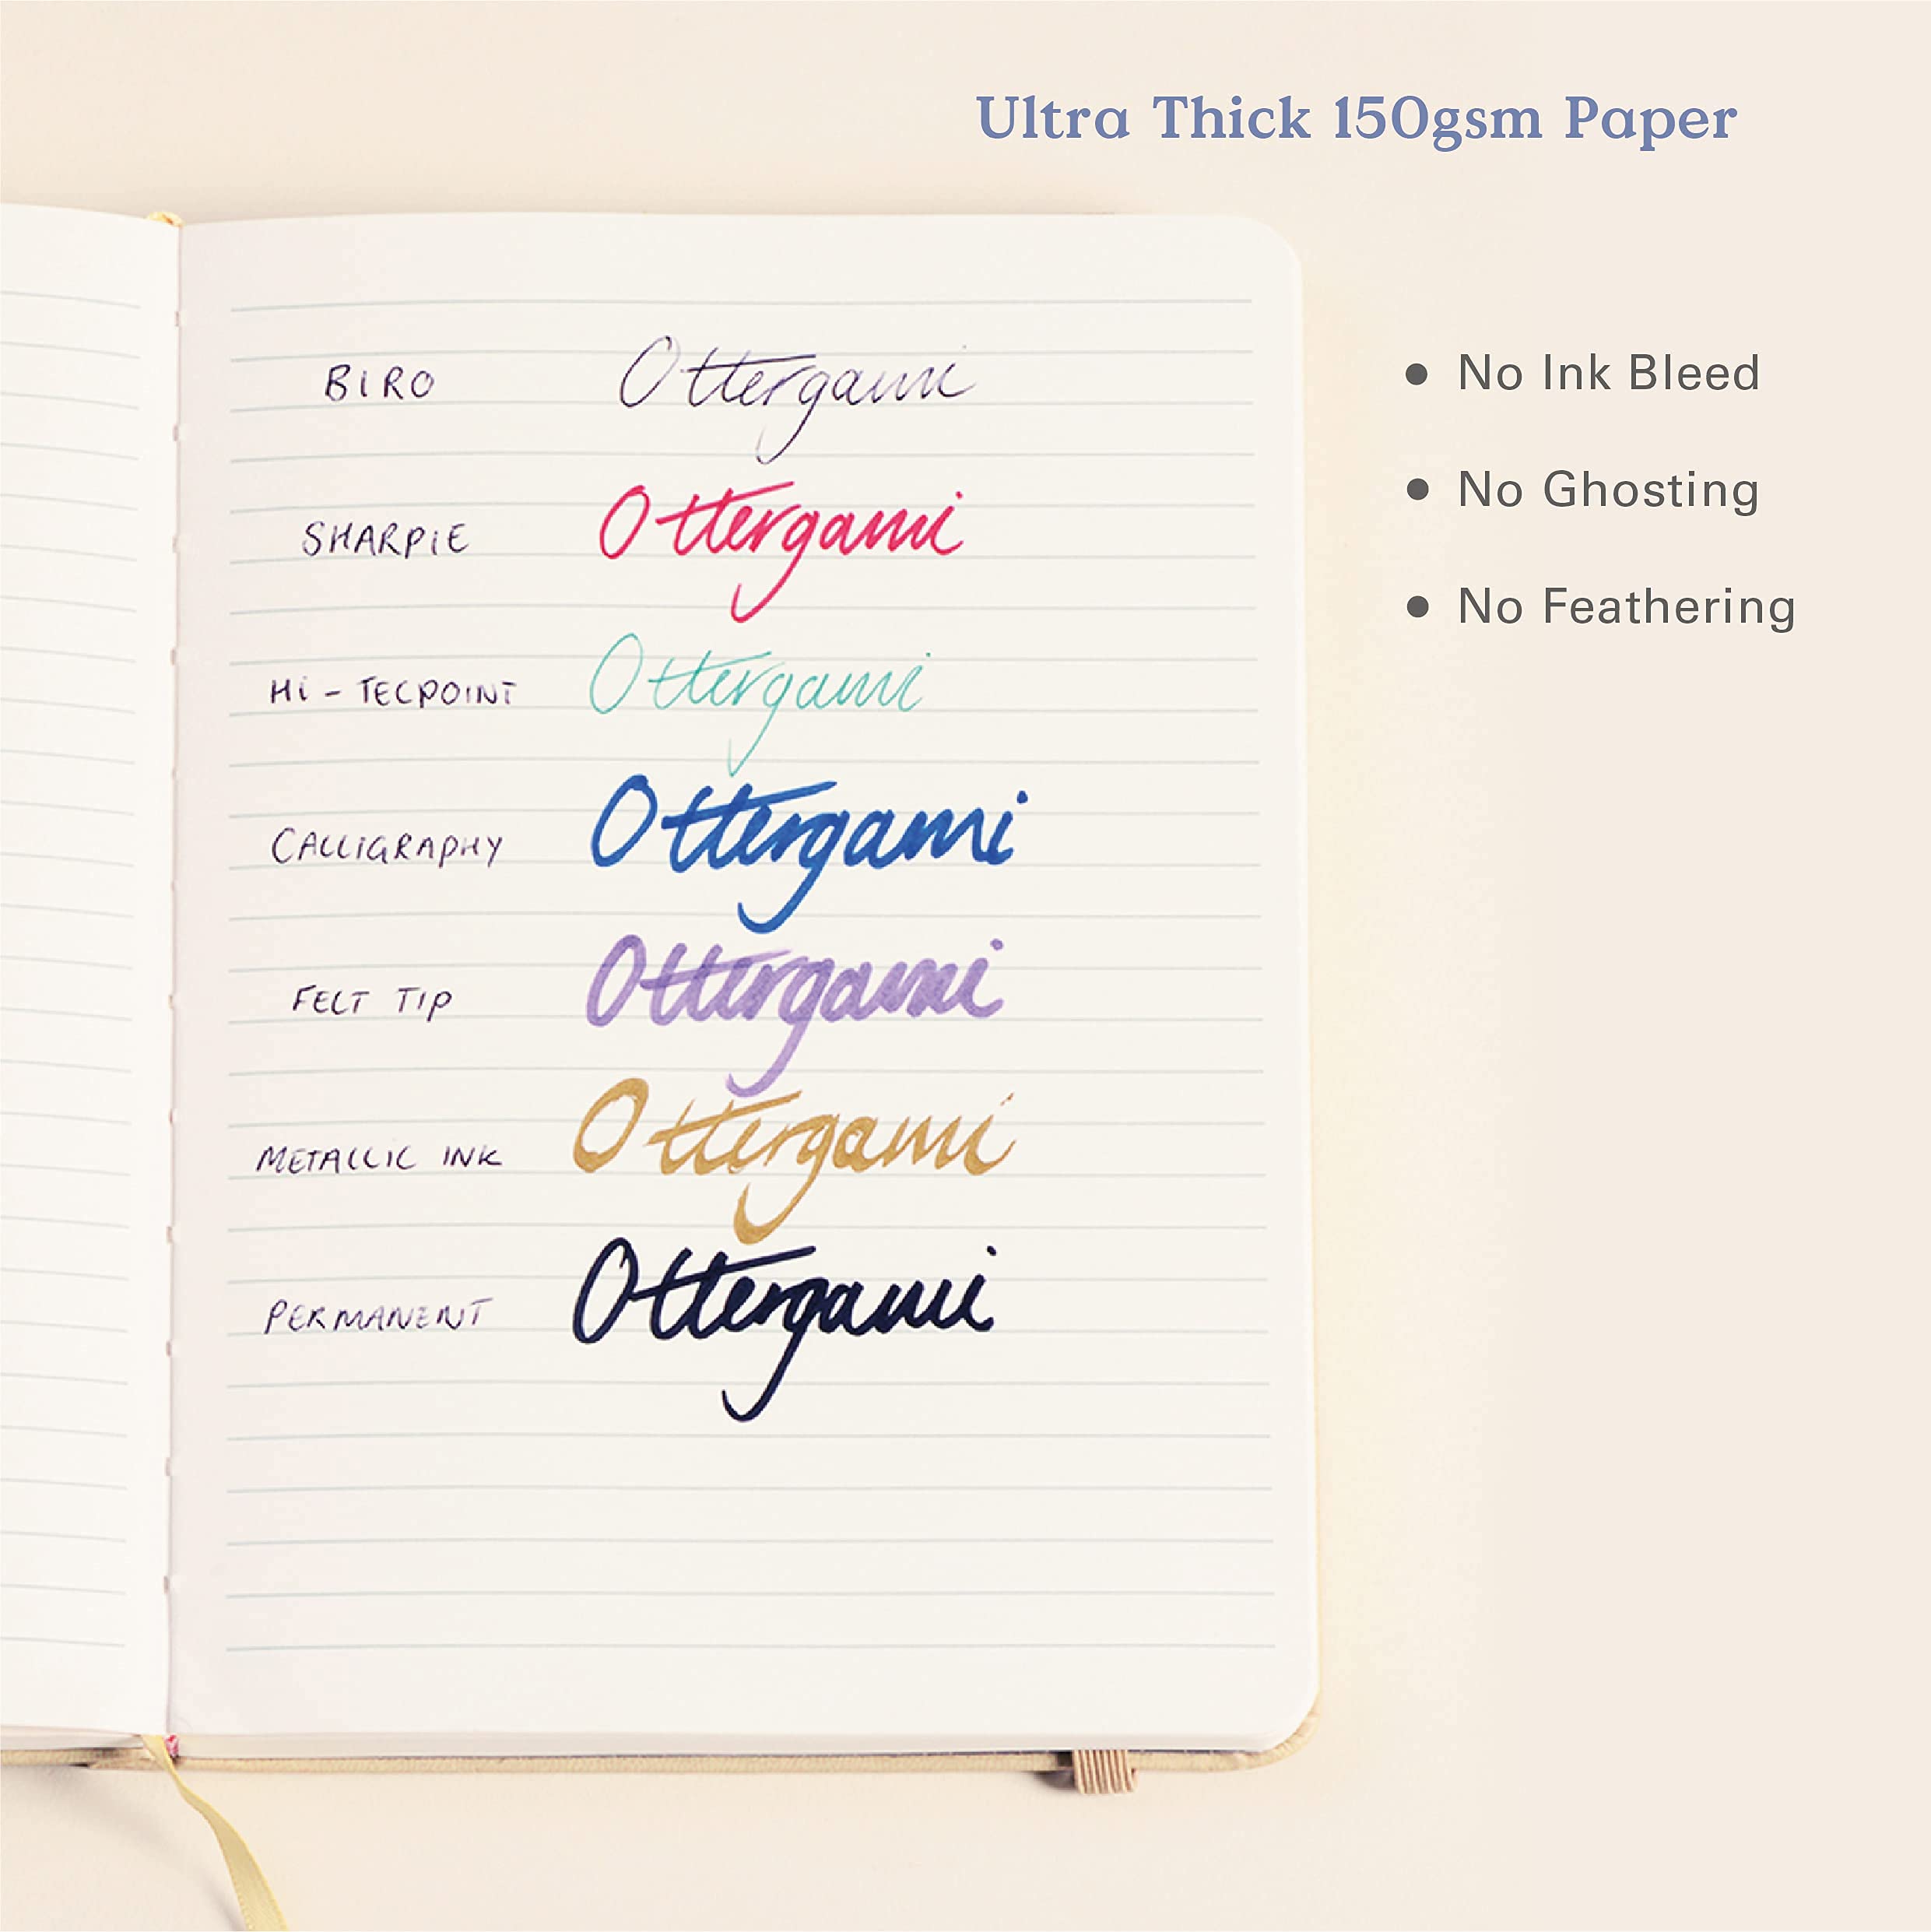 Ultra Thick 150gsm Paper
BIRO Ottergami
SHARPIE Ottergami
HI-TECPOINT Ottergami
CALLIGRAPHY Ottergami
FELT TIP Ottergami
METALLIC INK Ottergami
PERMANENT Ottergami
• No Ink Bleed
• No Ghosting
• No Feathering